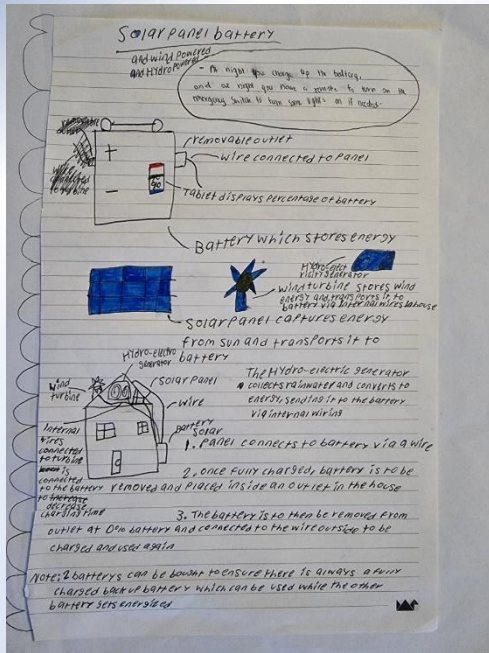 Solar panel battery
and wind powered
and Hydro powered
- At night you charge up the battery,
and at night you have a remote to turn on the
emergency switch to turn some lights on if needed.
removable outlet
wire connected to panel
+
-
Tablet displays percentage of battery
Battery which stores energy
Hydro-elect
ricity generator
wind turbine stores wind
energy and transports it to
battery via internal wires in house
Solar panel captures energy
from sun and transports it to
battery
Hydro-electro
generator
wind
turbine
solar panel
wire
battery
solar
The Hydro-electric generator
collects rainwater and converts to
energy, sending it to the battery
via internal wiring
Internal
wires
connected
to turbine
is
connected
to the battery
to
decrease
charging time
1. Panel connects to battery via a wire
2. Once fully charged, battery is to be
removed and placed inside an outlet in the house
3. The battery is to then be removed from
outlet at 0% battery and connected to the wire outside to be
charged and used again
Note: 2 batterys can be bought to ensure there is always a fully
charged back up battery which can be used while the other
battery gets energized